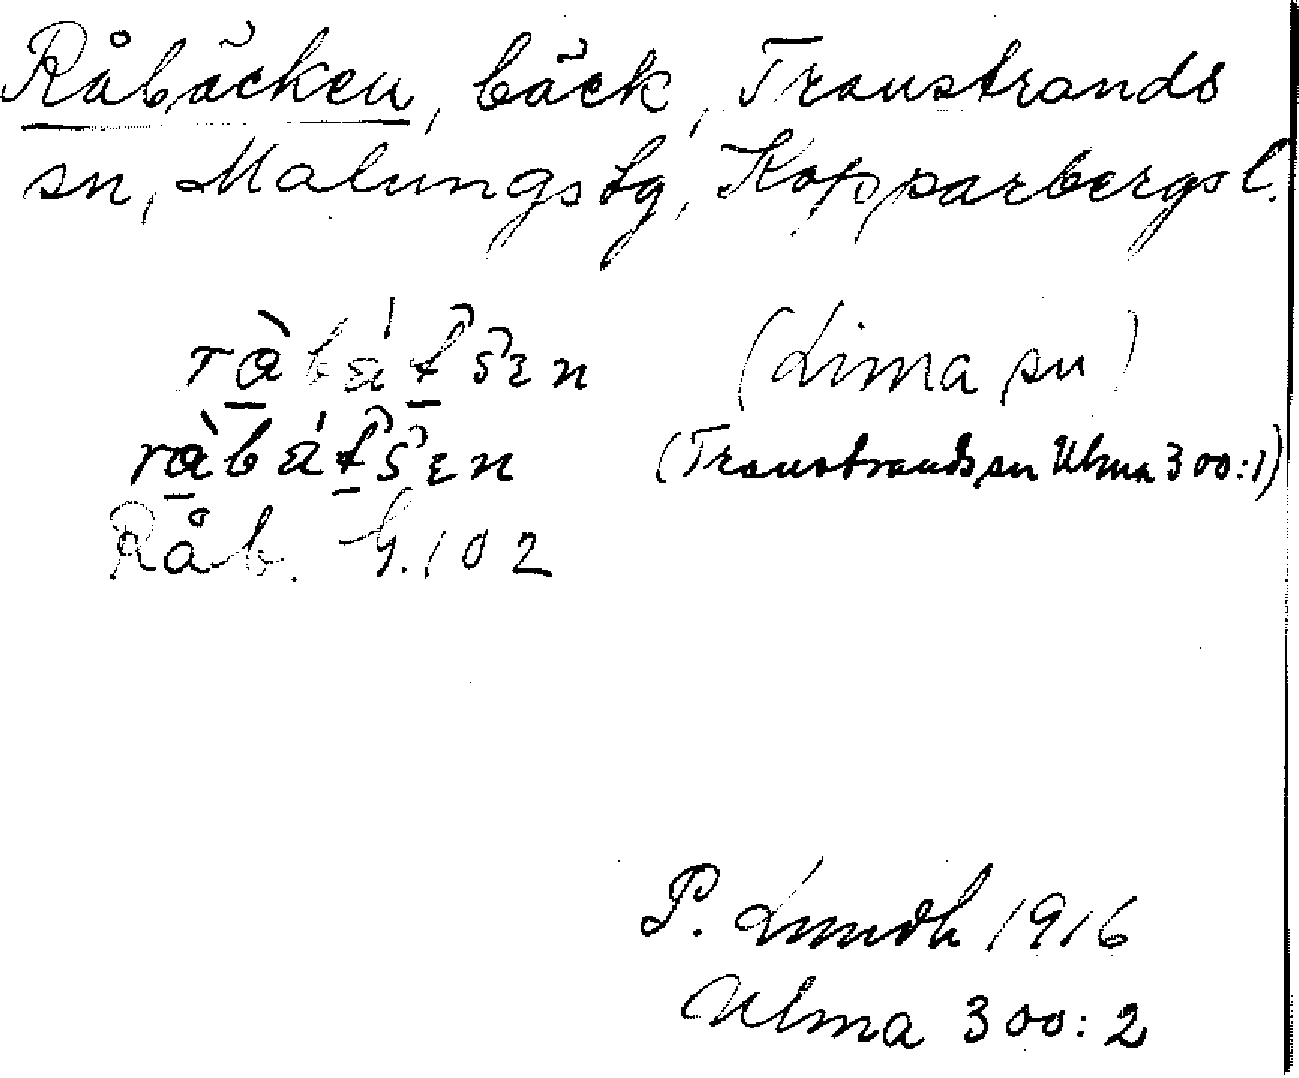 Råbäcken, bäck, Transtrands
sn, Malungs tg, Kopparbergs l.
(Lima sn)
(Transtrands sn Ulma 300:1)
Råb. G. 102
P. Lundh 1916
Ulma 300:2